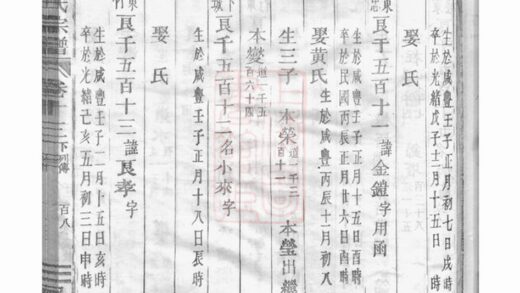 生於咸豐壬子正月初七日戌時
卒於光緒戊子十二月十五日
娶 氏
良千五百十一 諱金鐙字用函
生於咸豐壬子正月十五日酉時
卒於民國丙辰正月廿六日酉時
娶黄氏 生於咸豐丙辰十一月初八
生三子 本榮 道千二百十一 本瑩出繼
本燮 道千五百六十四
良千五百十二 名小來字
生於咸豐壬子正月十八日辰時
娶 氏
良千五百十三 諱良孝字
生於咸豐壬子二月十五日亥時
卒於光緒己亥五月初三日申時
氏宗譜 卷十二 下 列傳 百八